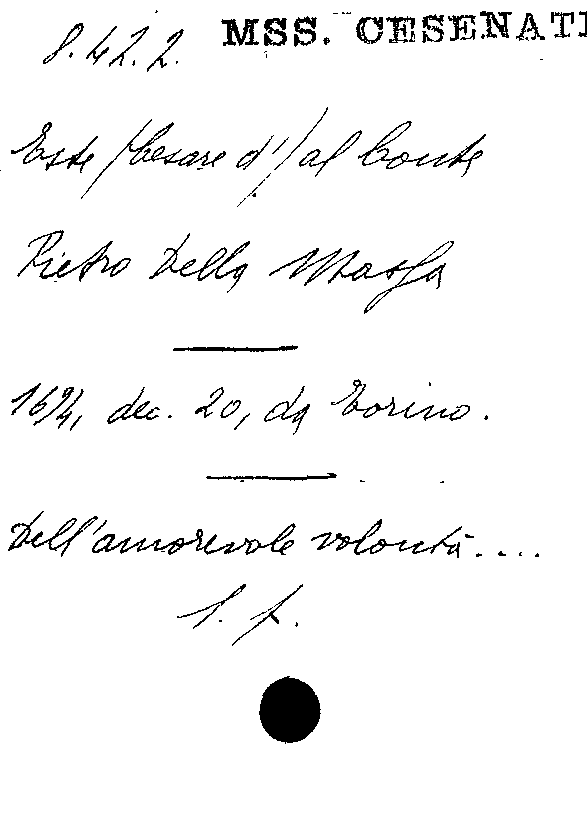 8.42.2. MSS. CESENATI
Este (Cesare d') al Conte
Pietro Della Massa
dec. 20, da Torino.
Dell'amorevole volontà....